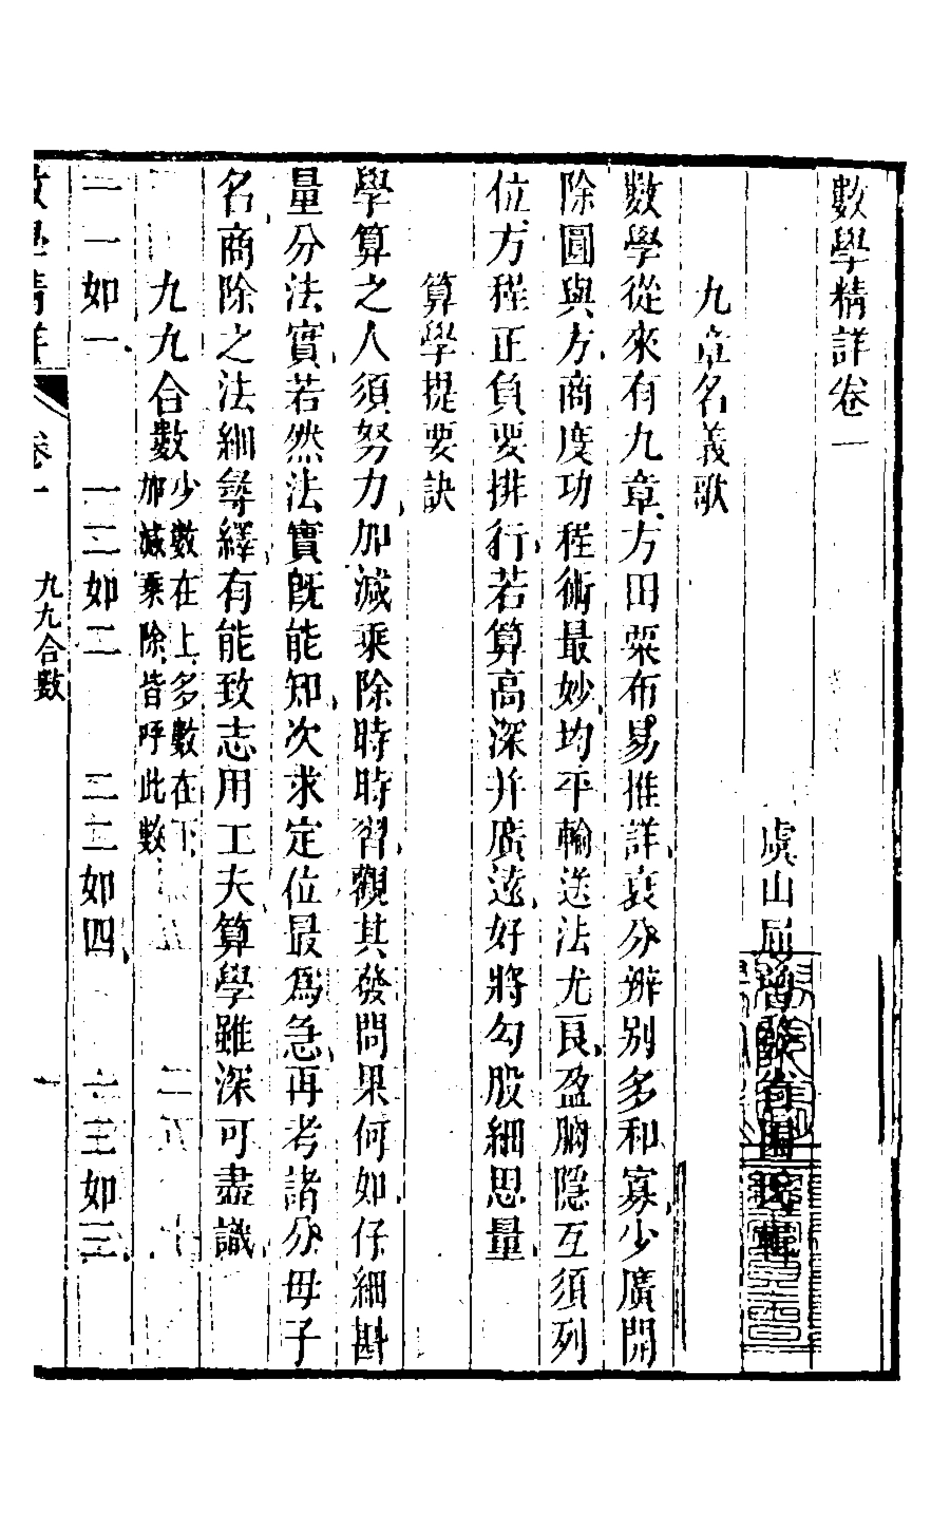 數學精詳卷一
虞山屈曾發省園氏輯
九章名義歌
數學從來有九章方田粟布易推詳衰分辨别多和寡少廣開
除圓與方商度功程術最妙均平輸送法尤良盈朒隱互須列
位方程正負要排行若算高深并廣遠好將勾股細思量
算學提要訣
學算之人須努力加減乘除時時習觀其發問果何如仔細斟
量分法實若然法實旣能知次求定位最爲急再考諸分母子
名商除之法細尋繹有能致志用工夫算學雖深可盡識
九九合數少數在上多數在下
加減乘除皆呼此數
一一如一 一二如二 二二如四 一三如三
數學精詳 卷一 九九合數 一